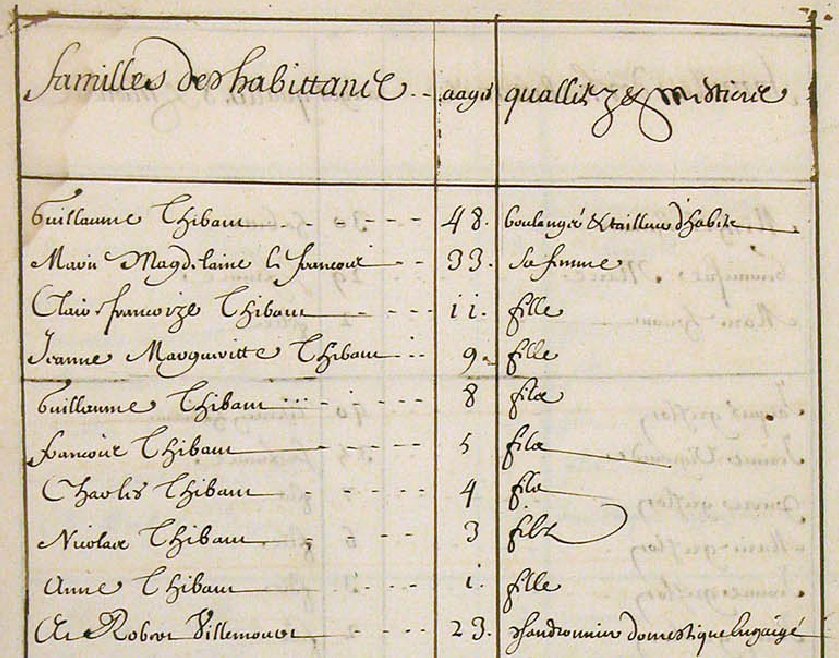 familles des habittans aages quallitez & mestiers
Guillaume Thibaut 48. boulanger & tailleur d'habits
Marie Magdelaine le francois 33. sa femme
Claire francoize Thibaut 11. fille
Jeanne Margueritte Thibaut 9. fille
Guillaume Thibaut 8 fils
francois Thibaut 5 fils
Charles Thibaut 4 fils
Nicolas Thibaut 3 fils
Anne Thibaut 1. fille
Robert Villemouer 23. chaudronnier domestique Engaigé